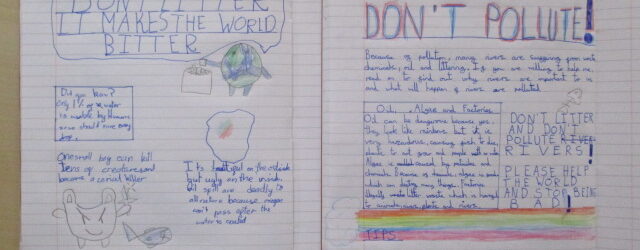 DON'T LITTER
IT MAKES THE WORLD
BITTER
Did you know?
only 1% of water
is usable by Humans
so we should save every
drop.
One small bag can kill
tens of creatures and
become a serial killer
It's beautiful on the outside
but ugly on the inside.
oil spill are deadly to
all nature because
can't pass after the
water is coated
DON'T POLLUTE!
Because of pollution, many rivers are suffering from waste
chemicals, oil and littering. If you are willing to help me,
read on to find out why rivers are important to us
and what will happen if rivers are polluted.
Oil, Algae and Factories
Oil can be dangerous because yes,
they look like rainbows but it is
very hazardous, causing fish to die,
plants to not grow and people
Algae is caused by
chemicals. Because of algae is
which can destroy many things. Factories
litter waste which is harmful
to animals, plants and rivers.
DON'T LITTER
AND DON'T
POLLUTE RIVER
RIVERS!
PLEASE HELP
THE WORLD
AND STOP BEING
BAD!
TIPS